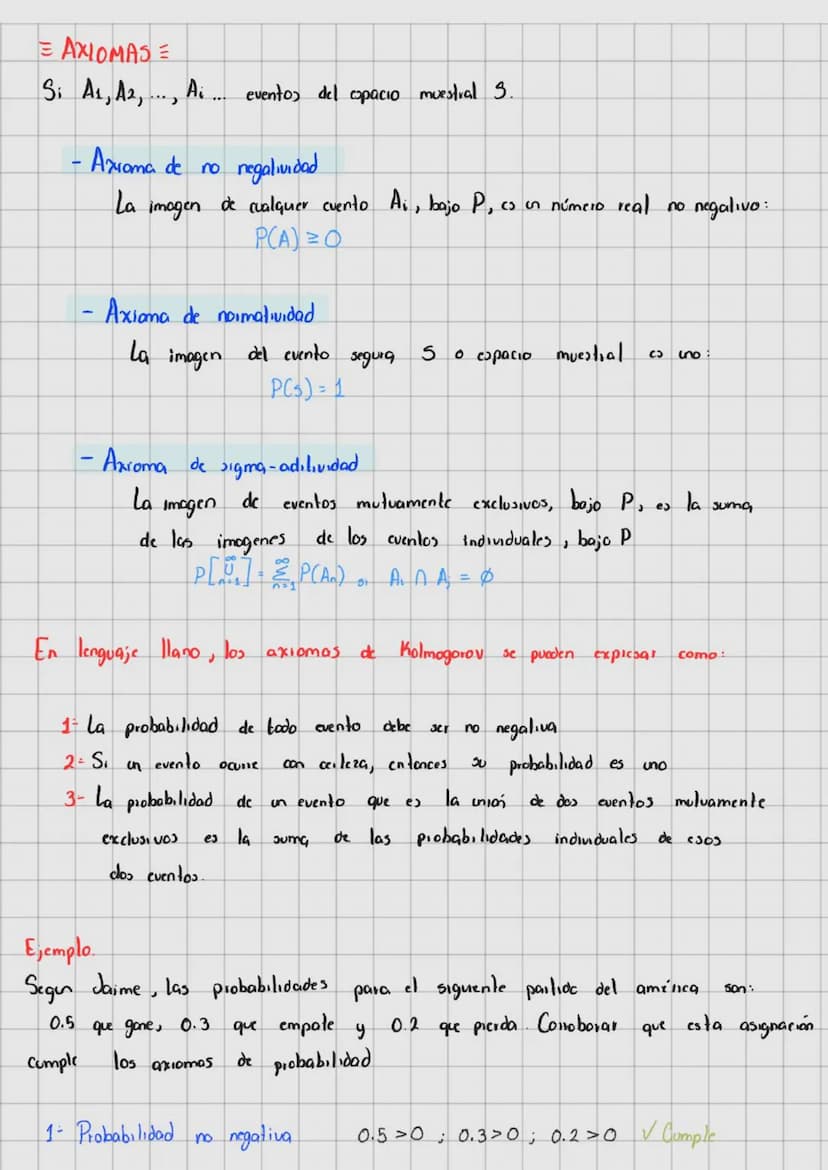 ≡ AXIOMAS ≡
Si A1, A2, ..., Ai ... eventos del espacio muestral S.
- Axioma de no negatividad
La imagen de cualquer evento Ai, bajo P, es un número real no negativo:
P(A) ≥ 0
- Axioma de normatividad
La imagen del evento segura S o espacio muestral es uno:
P(s) = 1
- Axioma de sigma-aditividad
La imagen de eventos mutuamente exclusivos, bajo P, es la suma
de las imagenes de los eventos individuales, bajo P
P[∞∪n=1] = ∞Σn=1 P(An) Ai ∩ Aj = ∅
En lenguaje llano, los axiomas de Kolmogorov se pueden expresar como:
1- La probabilidad de todo evento debe ser no negativa
2- Si un evento ocurre con certeza, entonces su probabilidad es uno
3- La probabilidad de un evento que es la unión de dos eventos mutuamente
exclusivos es la suma de las probabilidades individuales de esos
dos eventos.
Ejemplo.
Segun Jaime, las probabilidades para el siguiente partido del américa son:
0.5 que gane, 0.3 que empate y 0.2 que pierda. Corroborar que esta asignación
cumple los axiomas de probabilidad
1- Probabilidad no negativa 0.5 >0 ; 0.3>0 ; 0.2 >0 ✓ Cumple